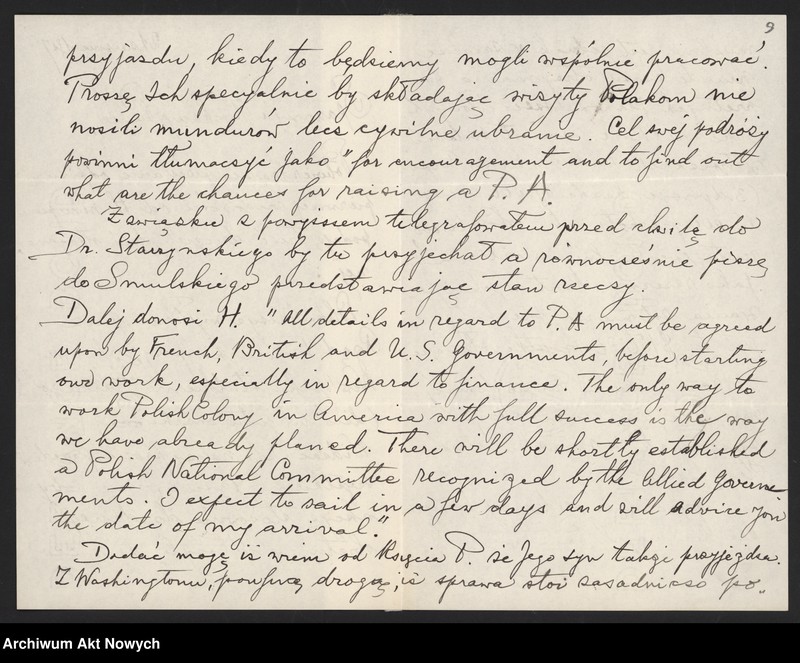 9
przyjazdu, kiedy to będziemy mogli wspólnie pracować.
Proszę Ich specyalnie by składając wizyty Polakom nie
nosili mundurów lecz cywilne ubranie. Cel swej podróży
powinni tłumaczyć jako "for encouragement and to find out
what are the chances for raising a P. A.
Z związku z powyższem telegrafowałem przed chwilą do
Dr. Starzynskiego by tu przyjechał a równocześnie piszę
do Smulskiego przedstawiając stan rzeczy.
Dalej donosi H. "All details in regard to P. A must be agreed
upon by French, British and U. S. Governments, before starting
our work, especially in regard to finance. The only way to
work Polish Colony in America with full success is the way
we have already planed. There will be shortly established
a Polish National Committee recognized by the Allied Govern-
ments. I expect to sail in a few days and will advice you
the date of my arrival."
Dodać mogę iż wiem od Księcia P. że Jego syn także przyjeżdza.
Z Washingtonu, poufną drogą, iż sprawa stoi zasadniczo po-
Archiwum Akt Nowych